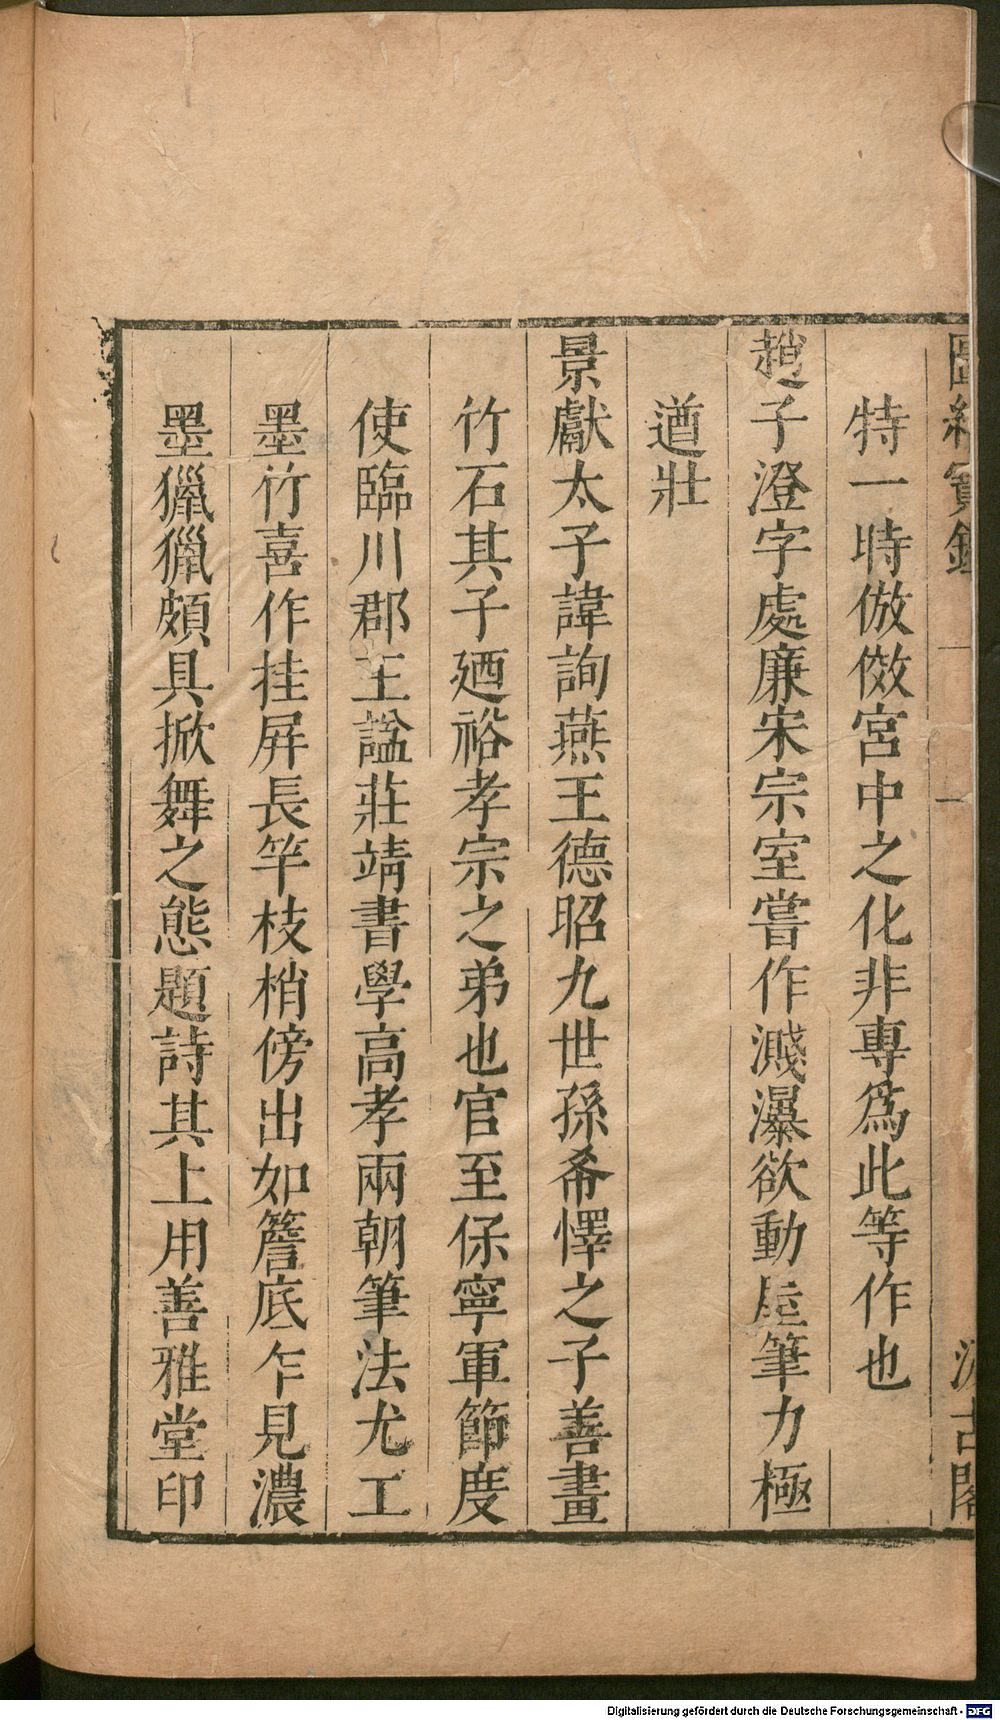 圖繪寶鑑 一 汲古閣
特一時倣傚宮中之化非專爲此等作也
趙子澄字處廉宋宗室嘗作濺瀑欲動崖筆力極
遒壯
景獻太子諱詢燕王德昭九世孫希懌之子善畫
竹石其子廼裕孝宗之弟也官至保寧軍節度
使臨川郡王諡莊靖書學高孝兩朝筆法尤工
墨竹喜作挂屛長竿枝梢傍出如簷底乍見濃
墨獵獵頗具掀舞之態題詩其上用善雅堂印
Digitalisierung gefördert durch die Deutsche Forschungsgemeinschaft - DFG